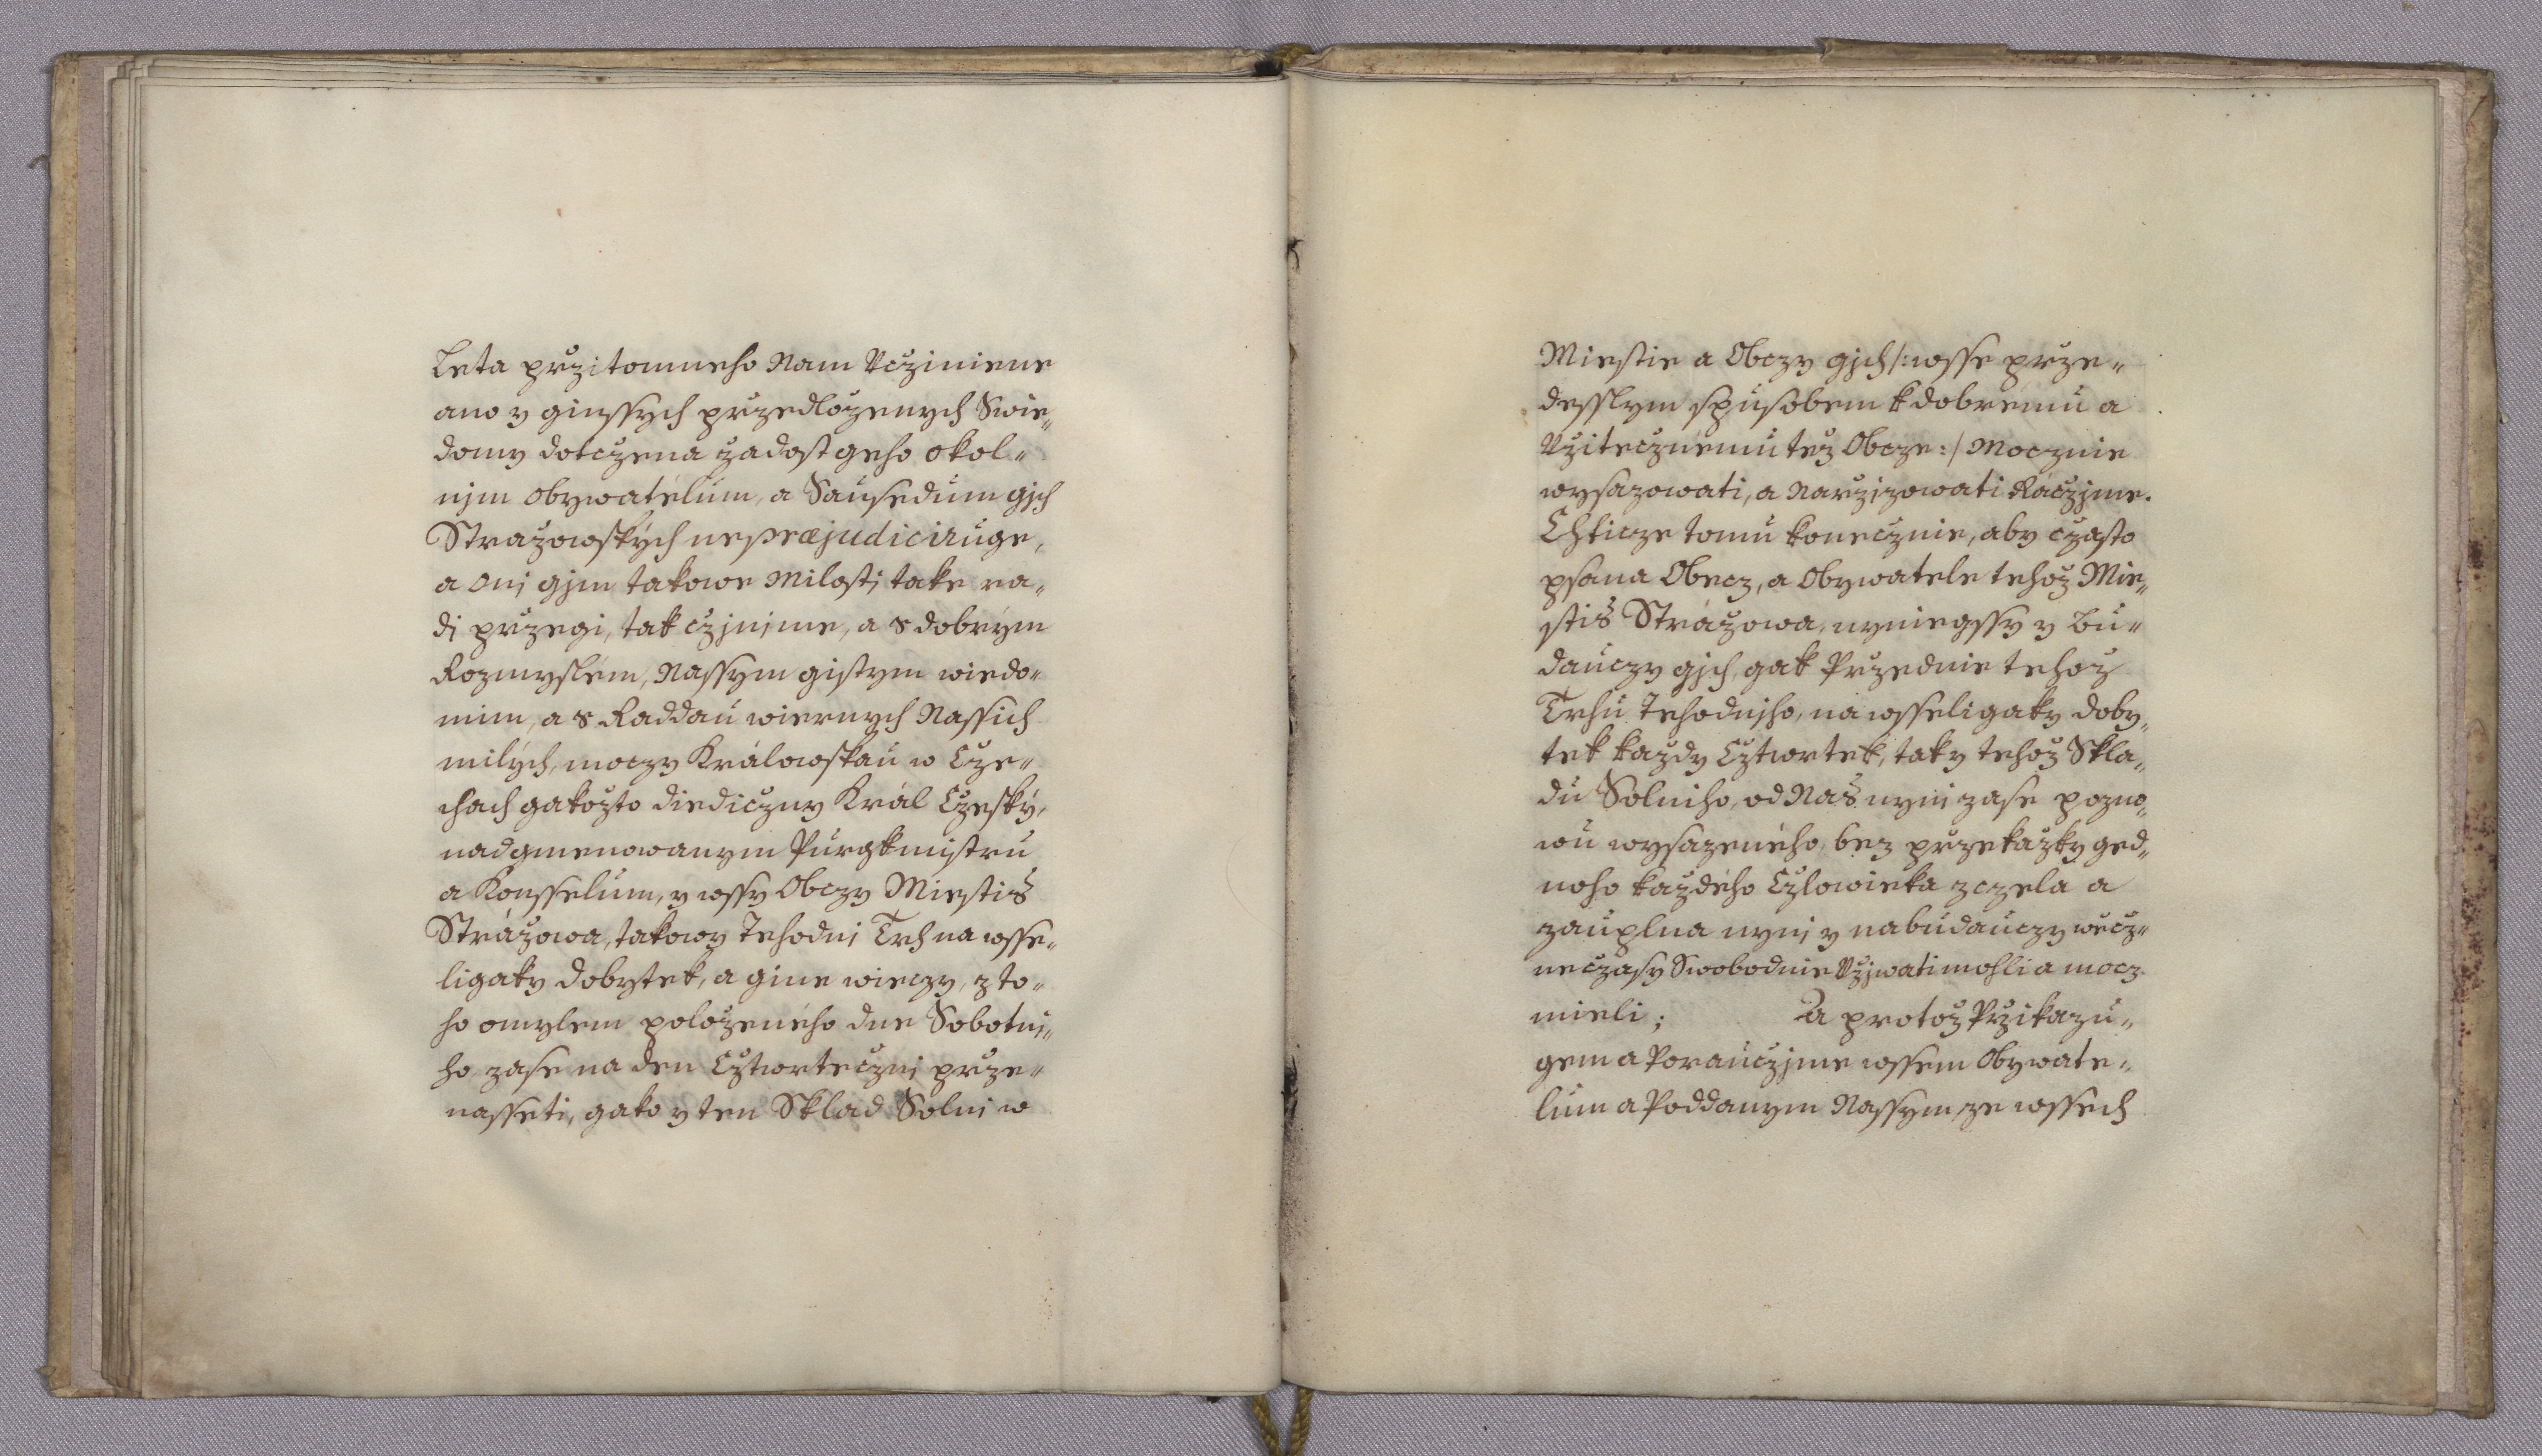 Leta przitomneho Nam Vcziniene
ano y ginssych przedlozenych Swie„
domy dotczena zadost geho okol„
nim obywatelum, a Sausedum gich
Strazowskych nepræjudiciruge,
a oni gim takowe Milosti take ra„
di przegi, tak czinime, a s dobrým
Rozmyslem, Nassym gistym wiedo„
mim, a s Raddau wiernych Nassich
milých, moczy Králowskau w Cze„
chach gakožto diediczny Král Czeský,
nadgmenowanym Purgkmistru
a Konsselum, y wssy Obczy Miestis
Strážowa, takowy Tehodni Trh na wsse„
ligaky dobytek, a gine wieczy, z to„
ho omylem položeného dne Sobotni„
ho zase na den Cztwrteczni prze„
nasseti, gako y ten Sklad Solni w
Miestie a Obczy gich /: wsse prze„
desslym spusobem k dobrému a
Vžitecznému též Obcze :/ Mocznie
wysazowati, a Narzizowati Ráczjme.
Chticze tomu konecznie, aby czasto
psana Obecz, a Obywatele tehoz Mie„
stis Strážowa, nyniegssy y bu„
dauczy gich, gak Przednie tehoz
Trhu Tehodniho, na wsseligaky doby„
tek každy Cztwrtek, tak y tehož Skla„
du Solniho, od Nas nyni zase pozno„
wu wysazeného, bez przekažky ged„
noho každého Czlowieka zczela a
zauplna nyni y na budauczy wěcz„
ne czasy Swobodnie Vžiwati mohli a mocz
mieli; A protož Przikazu„
gem a Porauczjme wssem Obywate„
lum a Poddanym Nassym ze wssech